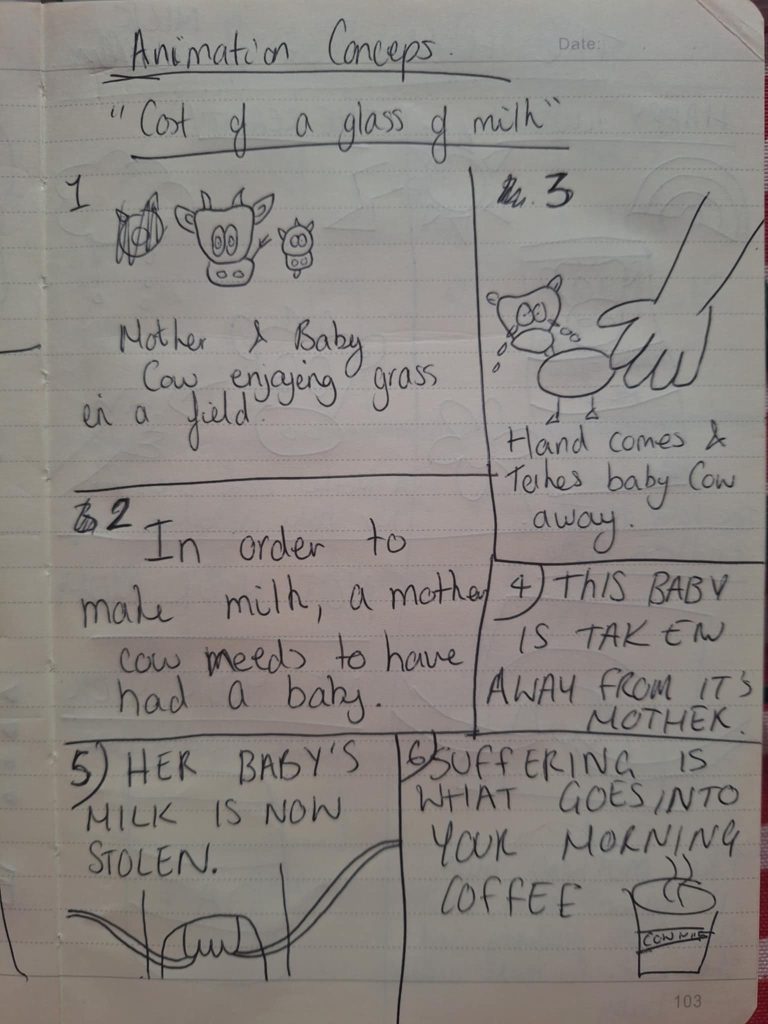 Date:
Animation Conceps.
"Cost of a glass of milk"
1
Mother & Baby
Cow enjoying grass
in a field.
2
In order to
make milk, a mother
cow needs to have
had a baby.
3
Hand comes &
Takes baby Cow
away.
4) THIS BABY
IS TAKEN
AWAY FROM IT'S
MOTHER.
5) HER BABY'S
MILK IS NOW
STOLEN.
6) SUFFERING IS
WHAT GOES INTO
YOUR MORNING
COFFEE
103